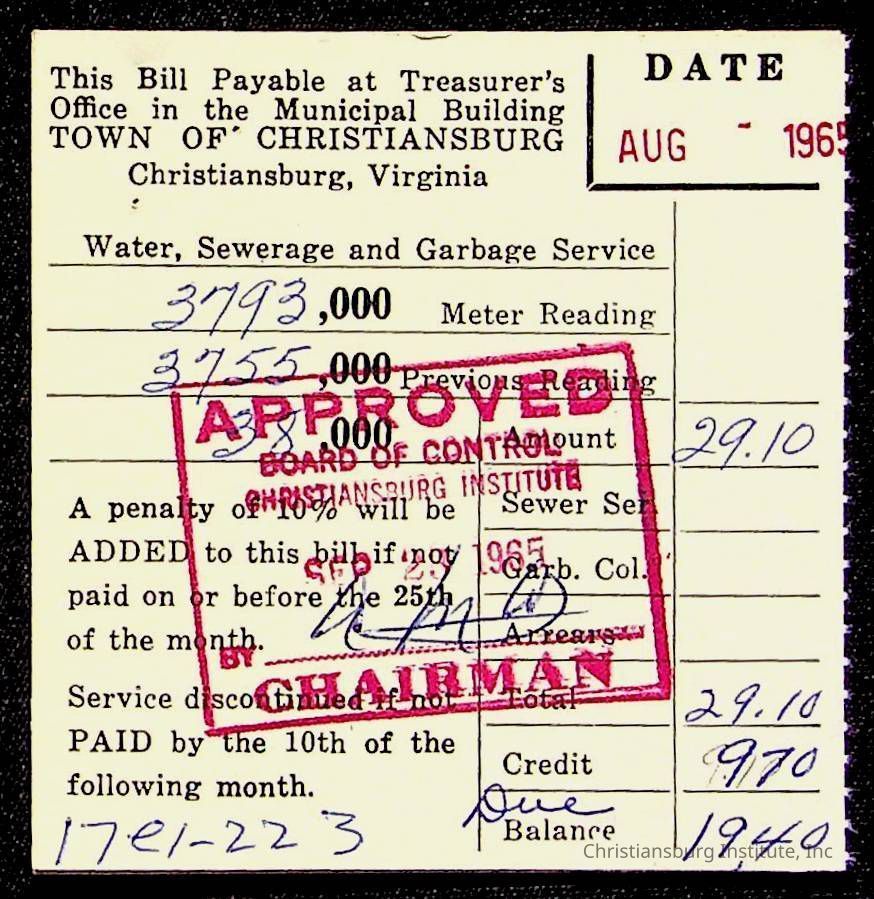 This Bill Payable at Treasurer's
Office in the Municipal Building
TOWN OF CHRISTIANSBURG
Christiansburg, Virginia
DATE
AUG - 1965
Water, Sewerage and Garbage Service
3793,000 Meter Reading
3755,000 Previous Reading
38,000 Amount 29.10
APPROVED
BOARD OF CONTROL
CHRISTIANSBURG INSTITUTE
SEP 23 1965
BY
CHAIRMAN
A penalty of 10% will be
ADDED to this bill if not
paid on or before the 25th
of the month.
Service discontinued if not
PAID by the 10th of the
following month.
Sewer Ser.
Garb. Col.
Arrears
Total 29.10
Credit 970
Due
Balance 19.40
17e1-223
Christiansburg Institute, Inc